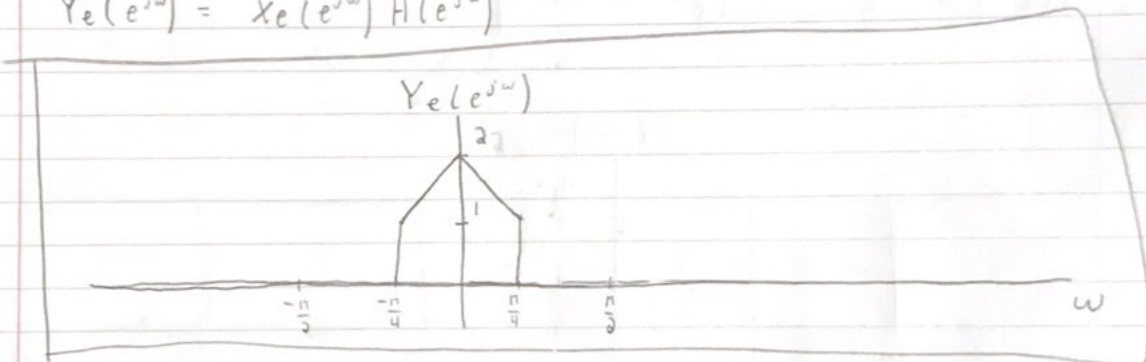 Ye(e^jω) = Xe(e^jω) H(e^jω
Ye(e^jω)
2
1
-π/2 -π/4 π/4 π/2
ω